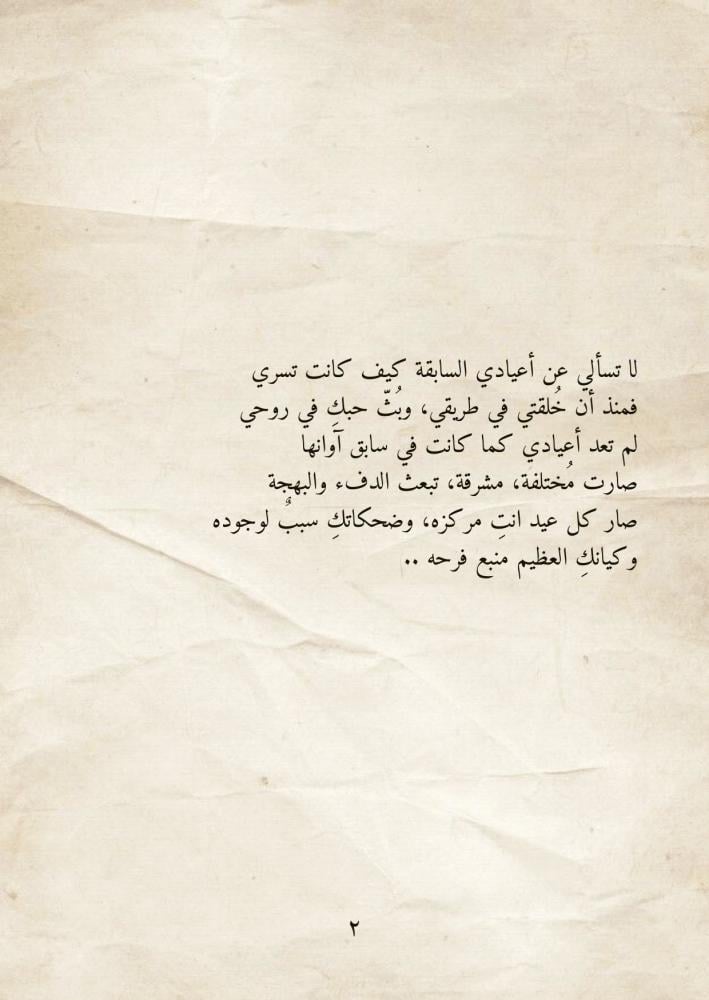 لا تسألي عن أعيادي السابقة كيف كانت تسري
فمنذ أن خُلقتي في طريقي، وبُثّ حبكِ في روحي
لم تعد أعيادي كما كانت في سابق آوانها
صارت مُختلفة، مشرقة، تبعث الدفء والبهجة
صار كل عيد انتِ مركزه، وضحكاتكِ سببٌ لوجوده
وكيانكِ العظيم منبع فرحه ..
٢